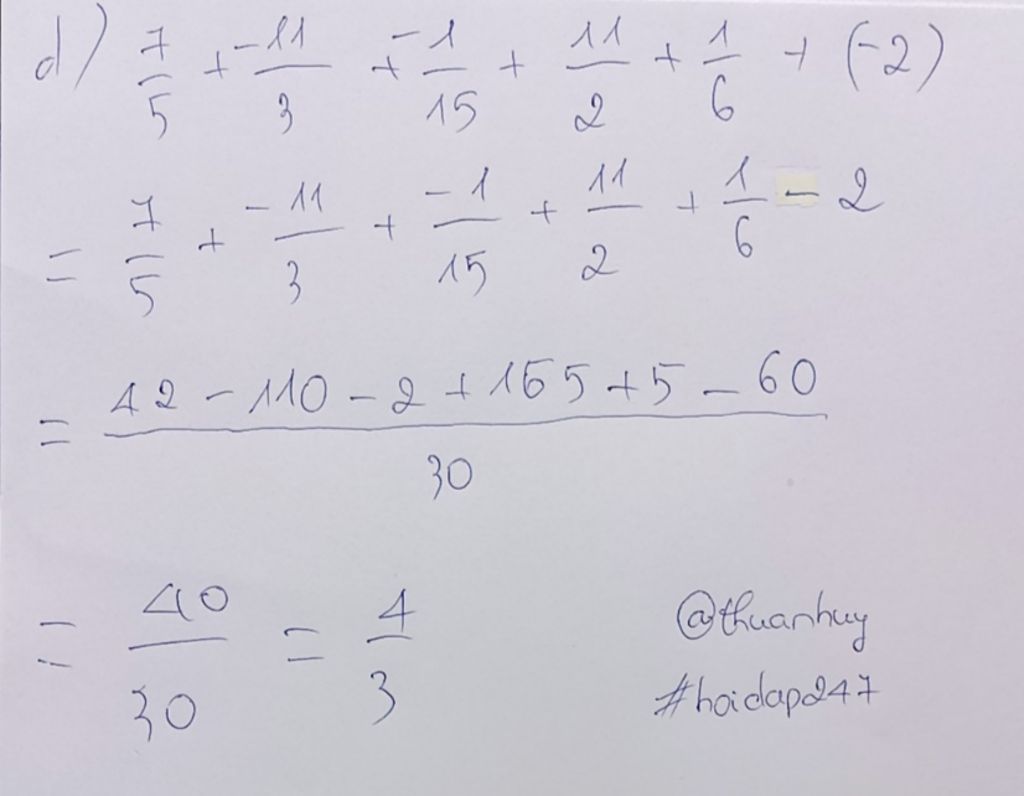 d) 7/5 + -11/3 + -1/15 + 11/2 + 1/6 + (-2)
= 7/5 + -11/3 + -1/15 + 11/2 + 1/6 - 2
= (42 - 110 - 2 + 165 + 5 - 60)/30
= 40/30 = 4/3
@thuanhuy
#hoidap247